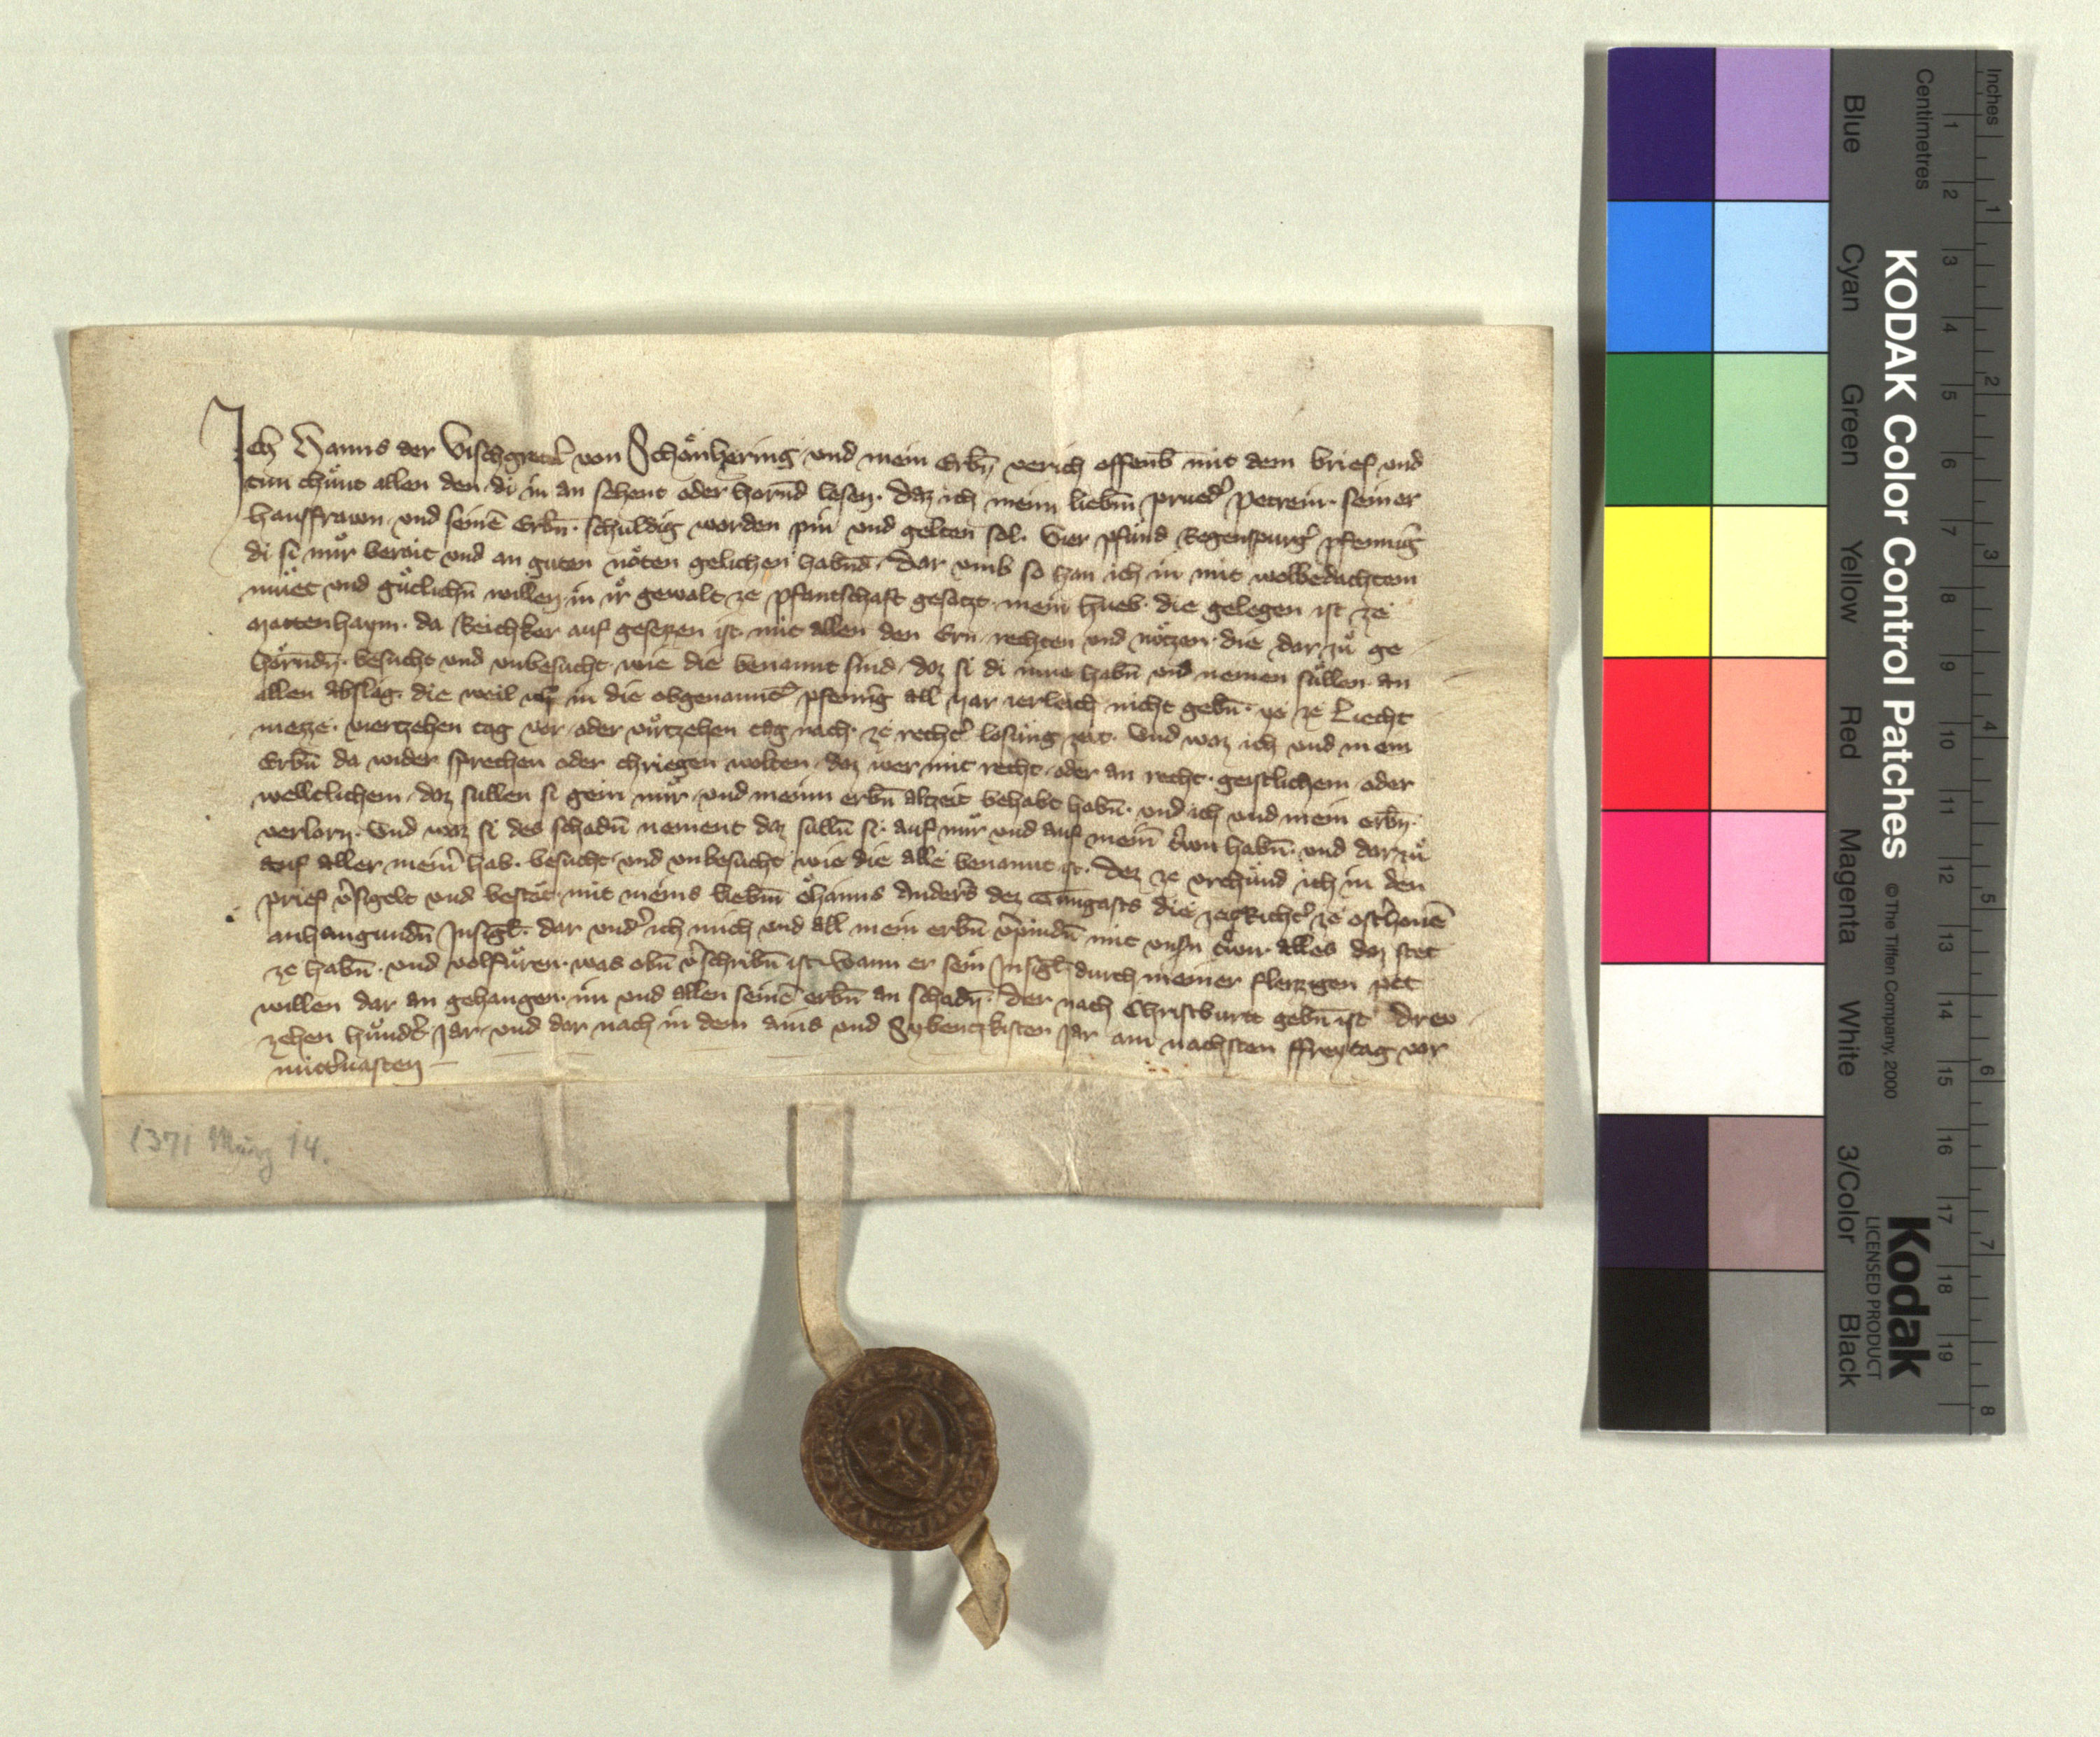 Ich Hanns der Vischgreter von Schönhering und mein Erbn̄ verich offenb mit dem brief und
tun chunt allen den di in an sehent oder hornd lesen. daz ich meim liebm̄ prueder Petrein. seiner
hausfrawn und seinē Erbn̄. schuldig worden pin und gelten sol. Vier pfund Regenspurgˀ pfennīg
di si mir berait und an guten nöten gelichen habnd. Dar umb so han ich in mit wolbedachtem
muet und gutlichn̄ willen in ir gewalt ze pfantschaft gesatzt mein hueb. die gelegen ist ze
da Reichker auf gesezzen ist mit allen den Ern rechten und nötzen die dar zu ge
hörndn̄. besucht und unbesucht wie die benannt sind daz si di inne habn̄ und nemen sullen an
allen Abslag. die weil wir in die obgenantē pfennīg all iar ierleich nicht gebn̄. ye ze Liecht
mezze. viertzehen tag vor oder virtzehen tag nach. ze rechtˀ losung zeit. Und waz ich und mein
Erbn̄ da wider sprechen oder chriegen wolten daz wer mit recht oder an recht. geistlichem oder
welltlichem. daz sullen si gein mir und meinn erbn̄ altzeit behabt habn̄. und ich und mein erbn̄.
verlorn. Und waz si des schadn̄ nement daz sulln̄ si. auf mir und auf mein̄ trwn habn̄. und darzu
auf aller meinˀ hab. besucht und unbesucht wie die alle benannt ist. Dez ze urchund ich in den
prief vˀsigelt und bestet mit meins liebm̄ öhaims Anders dez die zeit Richtˀ ze ostˀhouē
anhangundn̄ Insigl. dar undˀ ich mich und all mein erbn̄ vˀpindn̄ mit unsn trwn. alles daz stet
ze habn̄. und volfuren. was obn̄ vˀschribn̄ ist. Wann er sein Insigl durch meiner flezzigen pet
willen dar an gehangen. im und allen seinē erbn̄ an schadn̄. Der nach Christburtt gebn̄ ist drew
zehen hundˀt Jar und dar nach in dem ains und Sybentzkisten Jar am nachsten ffreytag vor
mittˀuasten
1371 März 14.
Inches
Centimetres
1 2 3 4 5 6 7 8 9 10 11 12 13 14 15 16 17 18 19
1 2 3 4 5 6 7 8
KODAK Color Control Patches
©The Tiffen Company, 2000
Kodak
LICENSED PRODUCT
Blue Cyan Green Yellow Red Magenta White 3/Color Black